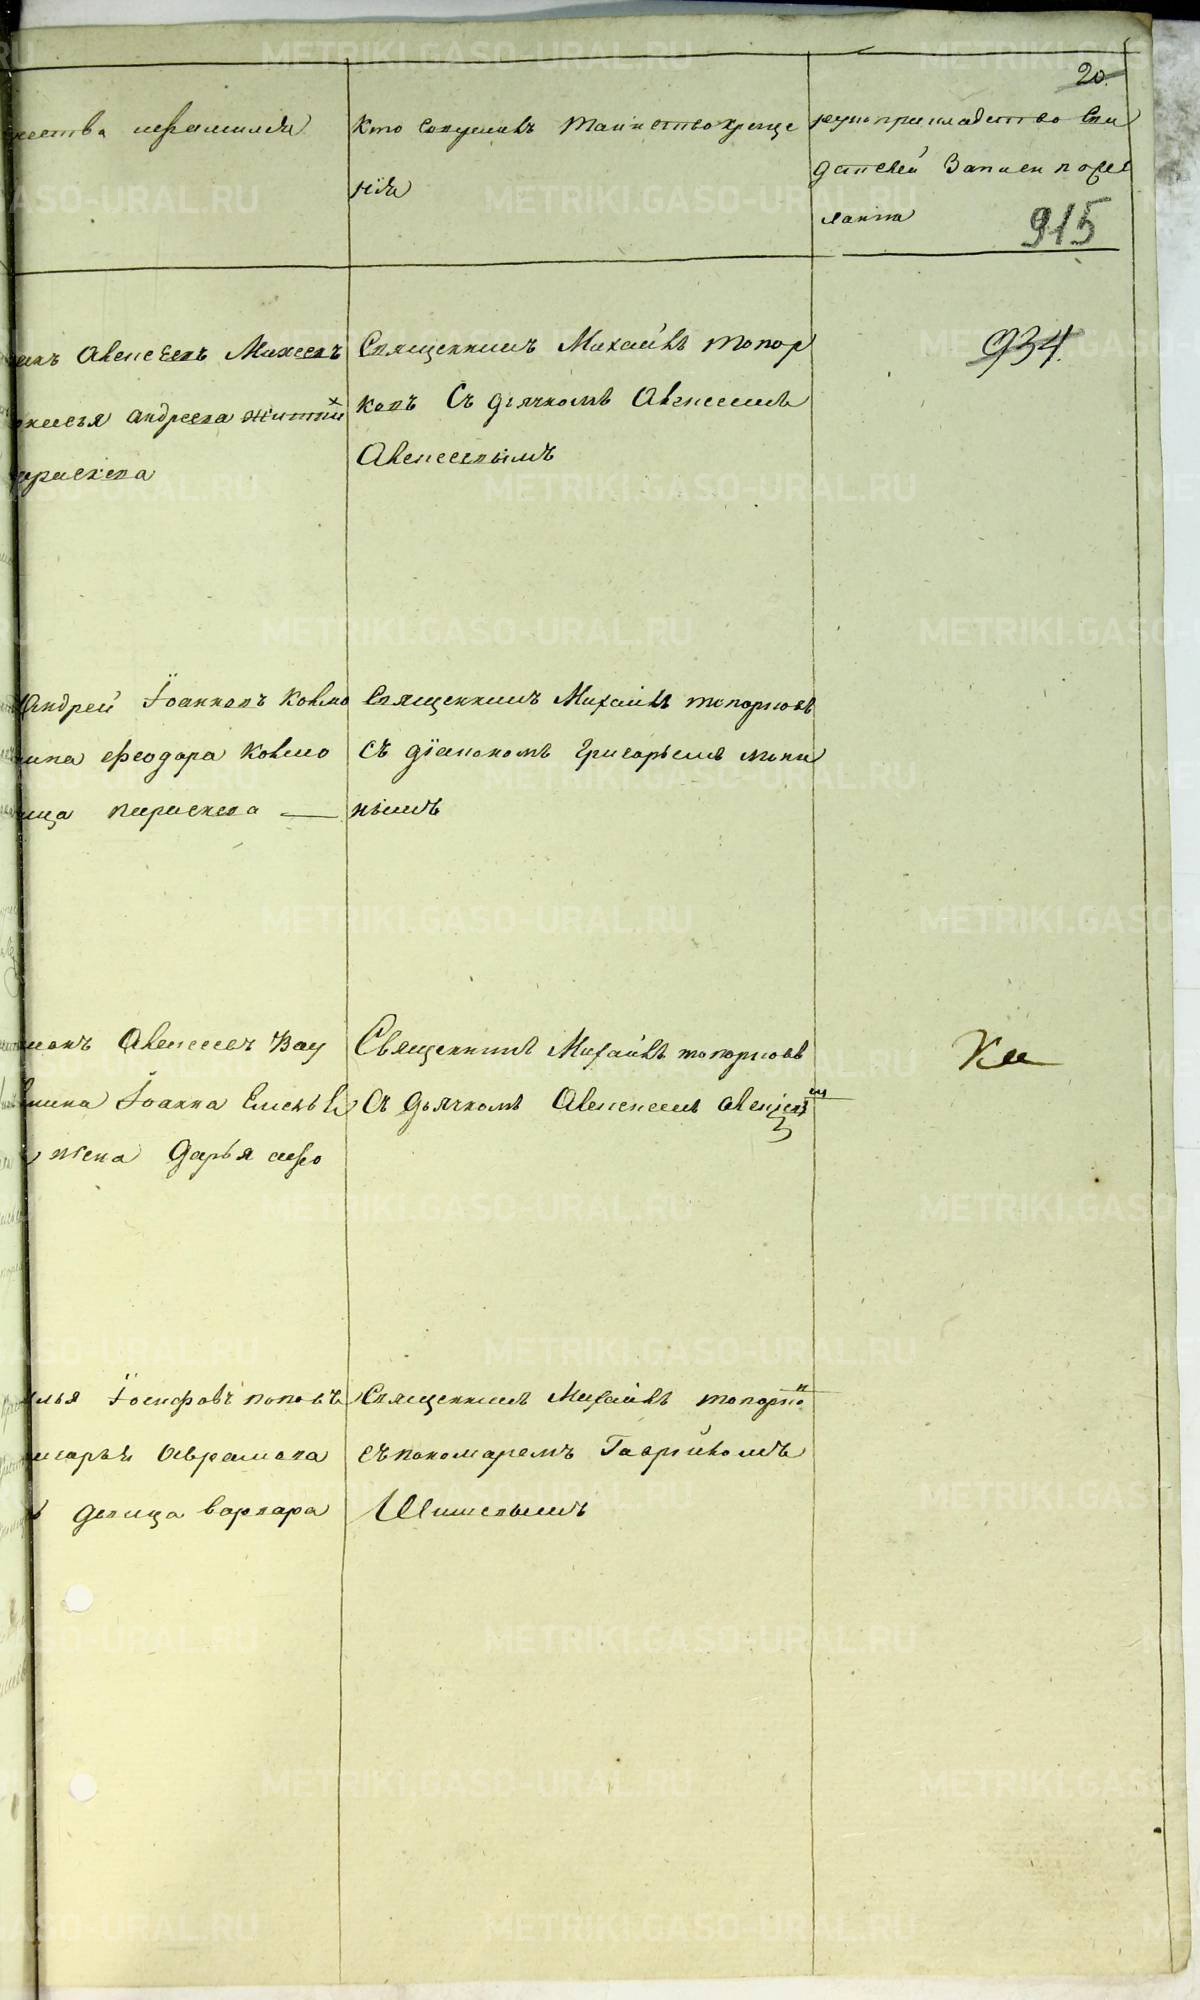 20.
чества ифамилiи
Кто Совершивъ таинство креще
нiя
рукоприкладство Сви
детелей Записи поже
ланiю
915
934
Алексеевъ Михеевъ
Андреева жити
параскева
Священникъ Михайлъ топор
ковъ Съ дьячкомъ Алексеемъ
Алексеевымъ
Андрей Iоанновъ Ковио
феодора Ковио
ица параскева
Священникъ Михайлъ топорковъ
съ дiакономъ Григорьемъ
нымъ
Алексеевъ Вау
Iоанна Елисѣев
жена Дарья афо
Священникъ Михайлъ топорковъ
Съ дьячкомъ Алексеемъ Алексеевым
Ка
илья Iосифовъ поповъ
Аврамова
девица варвара
Священникъ Михайлъ топорков
съпономаремъ Гавриíломъ
Шишевымъ